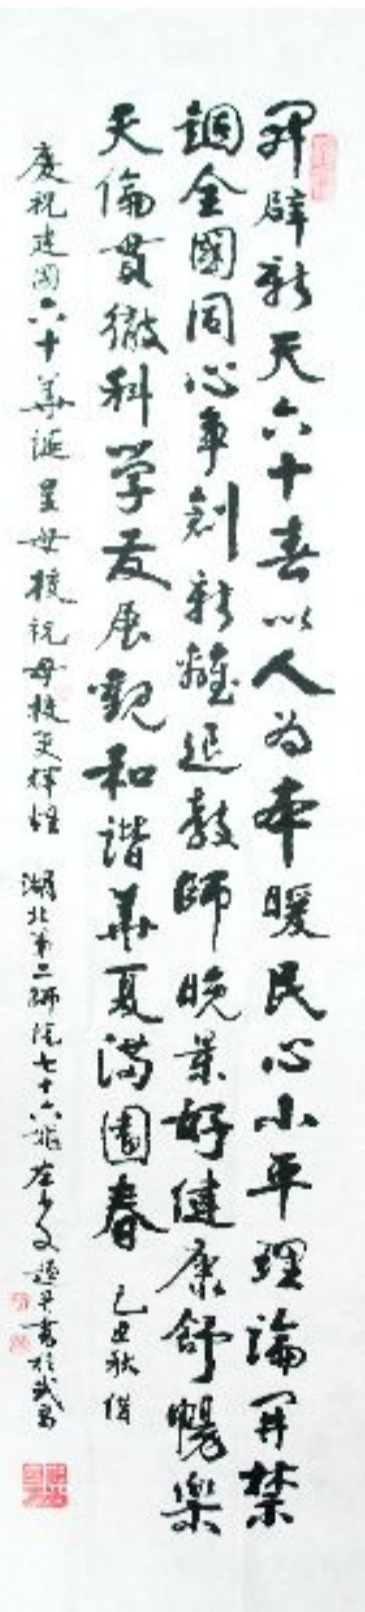 開辟新天六十春以人为本暖民心小平理論開禁
錮全國同心争創新離退教師晚景好健康舒暢樂
天倫貫徹科学发展觀和谐華夏满園春 己丑秋
慶祝建國六十華诞 母校祝母校更輝煌 湖北第二師院七十六 左 文 書於武昌